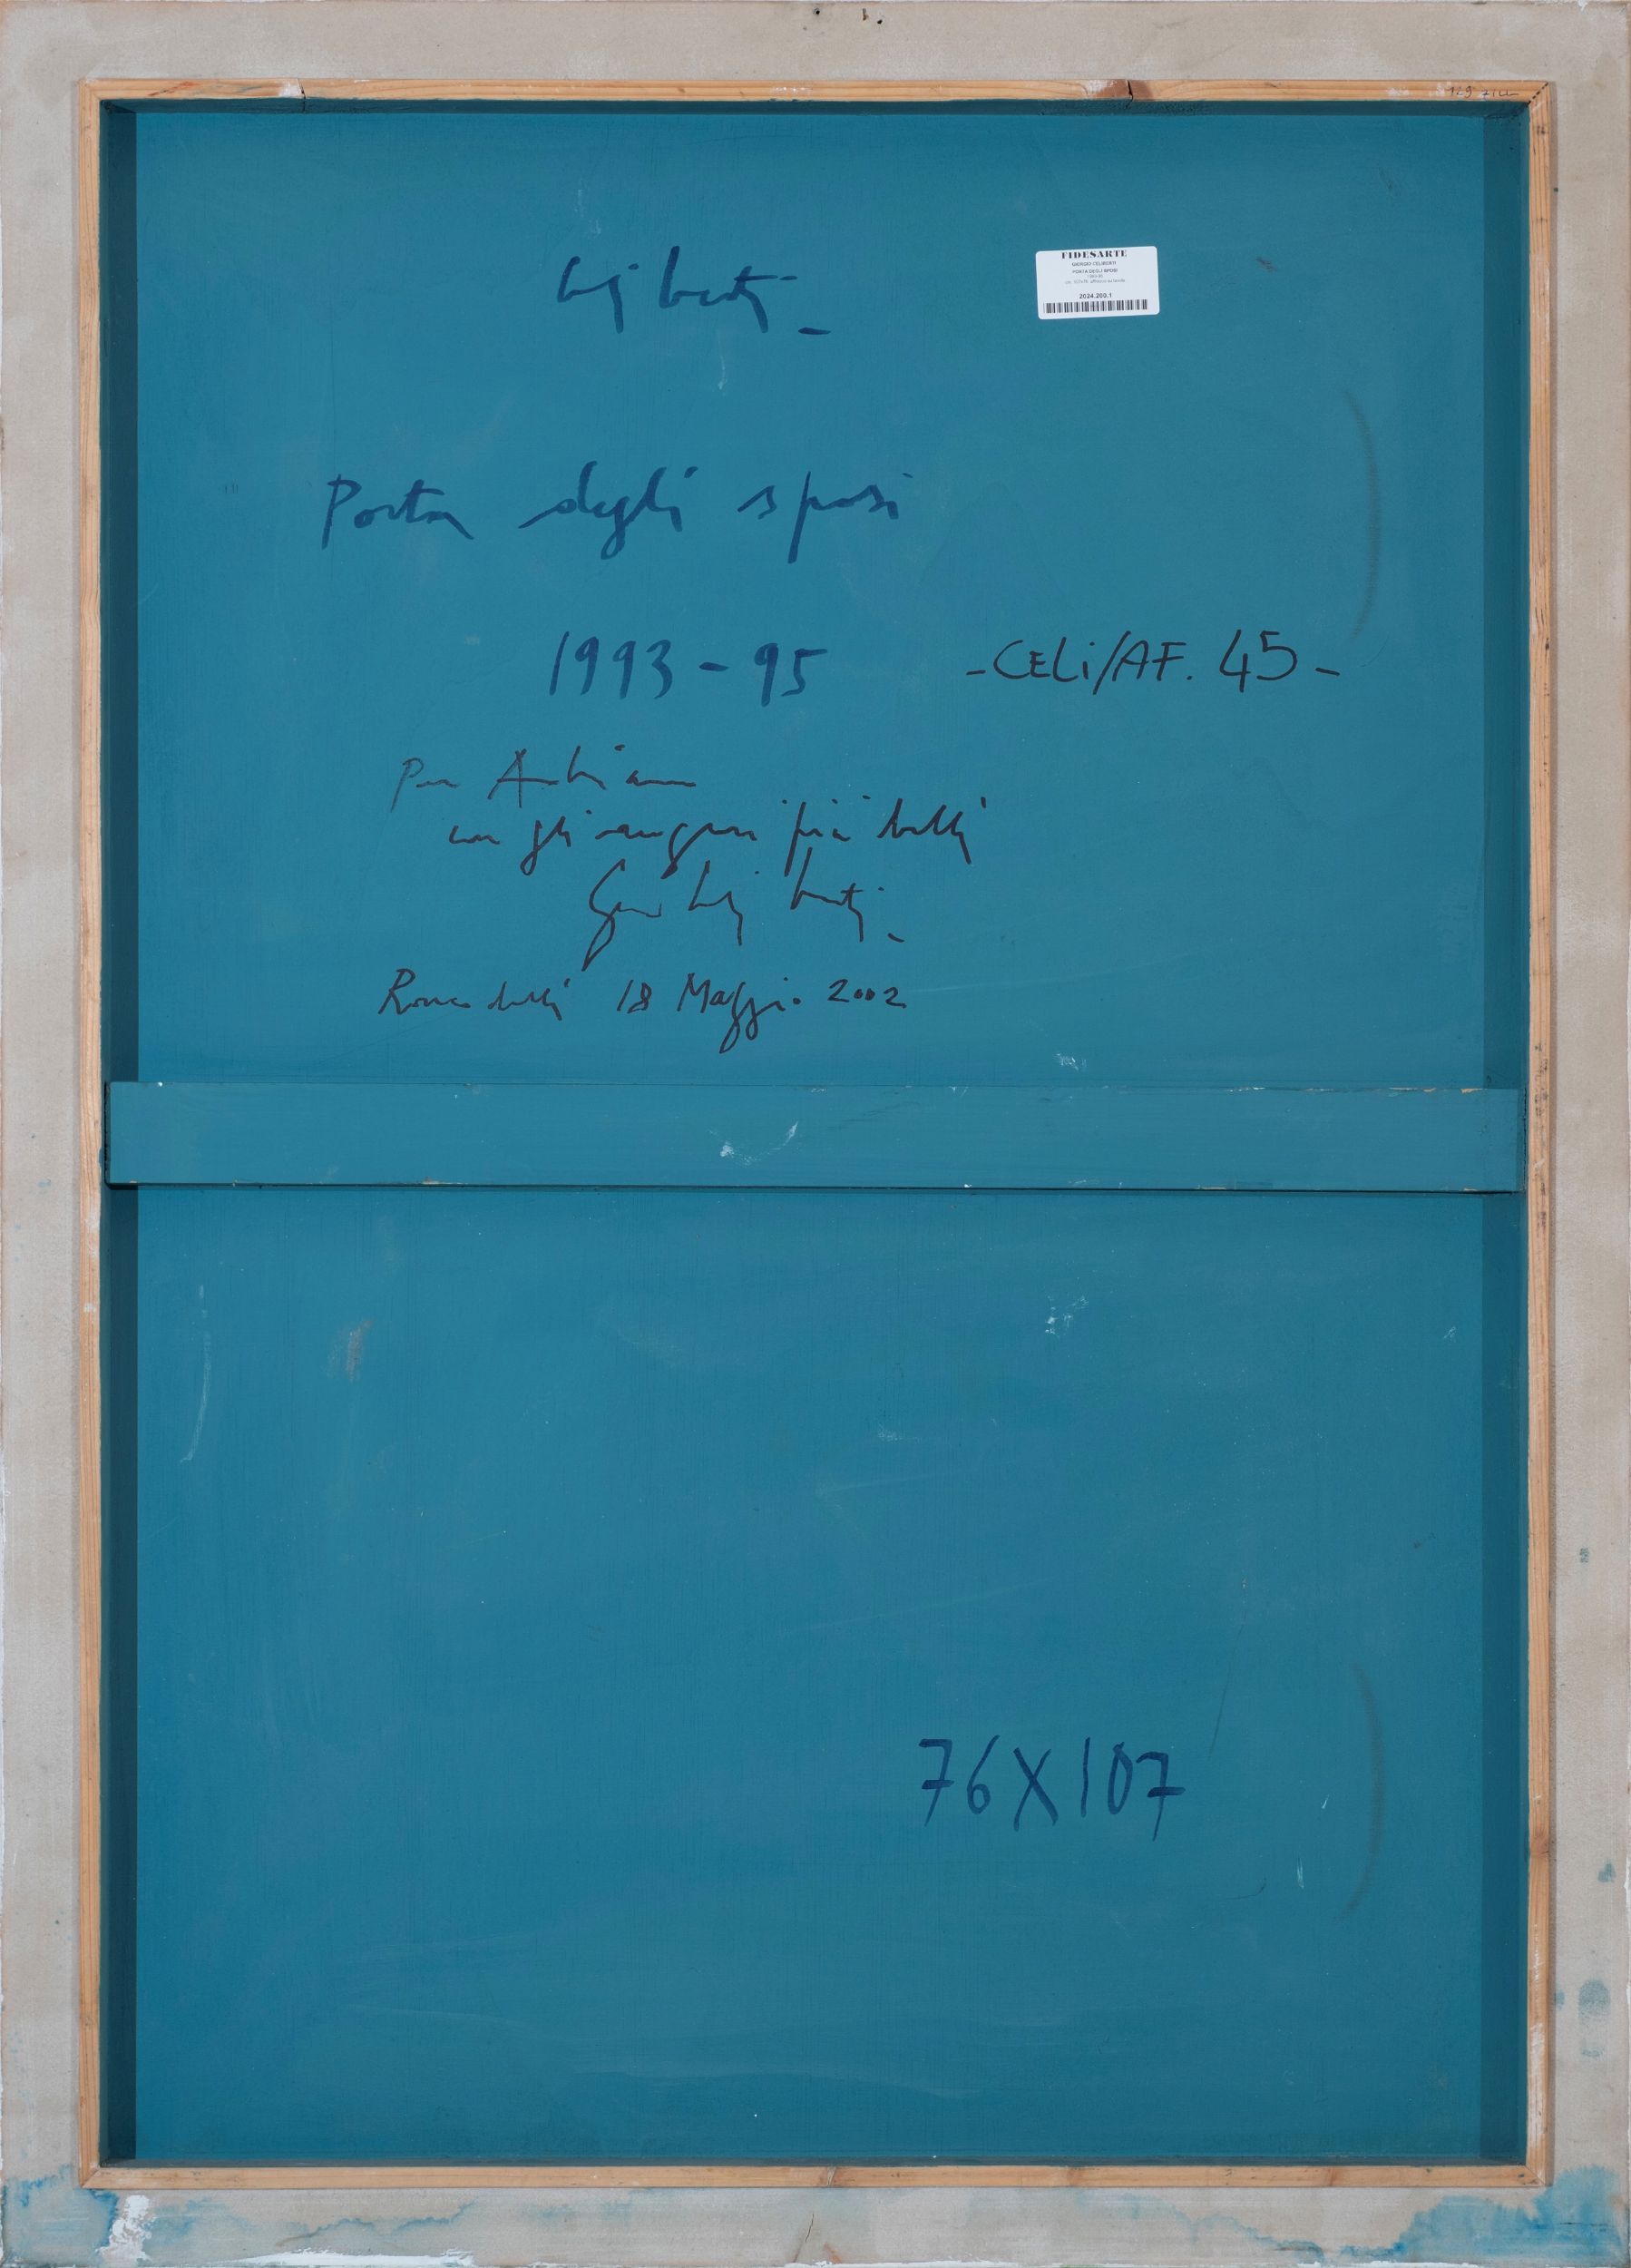 FIDESARTE
GIORGIO CELIBERTI
PORTA DEGLI SPOSI
1993-95
2024.260.1
Celiberti
Porta degli sposi
1993-95 -CELi/AF. 45-
Per
con gli auguri più belli
Celiberti
18 Maggio 2002
76X107